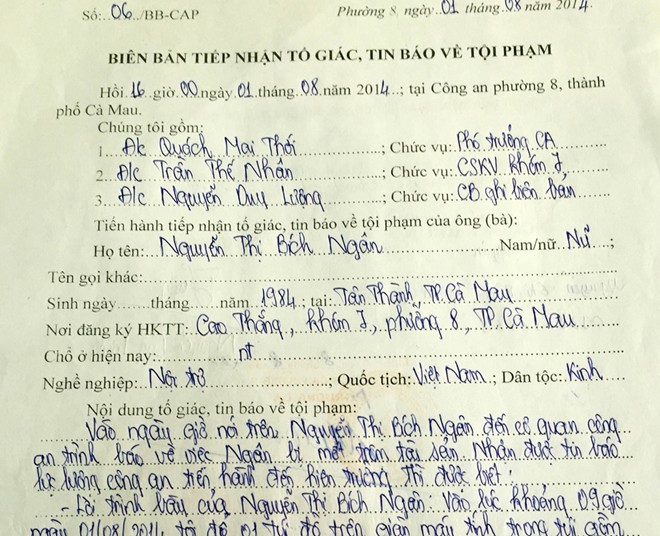 Số:..06../BB-CAP
Phường 8, ngày 01 tháng 08 năm 2014.
BIÊN BẢN TIẾP NHẬN TỐ GIÁC, TIN BÁO VỀ TỘI PHẠM
Hồi.16..giờ.00.ngày.01.tháng.08.năm 2014..; tại Công an phường 8, thành
phố Cà Mau.
Chúng tôi gồm:
1....Đ/c Quách Mai Thới...; Chức vụ: Phó trưởng CA
2...Đ/c Trần Thế Nhân...; Chức vụ: CSKV khóm I,
3...Đ/c Nguyễn Duy Lượng...; Chức vụ: CB ghi biên bản
Tiến hành tiếp nhận tố giác, tin báo về tội phạm của ông (bà):
Họ tên:...Nguyễn Thị Bích Ngân...Nam/nữ..Nữ..;
Tên gọi khác:
Sinh ngày.......tháng.......năm 1984.; tại: Tân Thành, TP. Cà Mau
Nơi đăng ký HKTT: Cao Thắng, khóm I, phường 8, TP. Cà Mau
Chổ ở hiện nay: nt
Nghề nghiệp: Nội trợ...; Quốc tịch: Việt Nam.; Dân tộc: Kinh
Nội dung tố giác, tin báo về tội phạm:
Vào ngày giờ nói trên Nguyễn Thị Bích Ngân đến cơ quan công
an trình báo về việc Ngân bị mất trộm tài sản. Nhận được tin báo
lực lượng công an tiến hành đến hiện trường thì được biết:
- Lời trình bày của Nguyễn Thị Bích Ngân: Vào lúc khoảng 09 giờ
ngày 01/08/2014 tôi để 01 túi đồ trên giàn máy tính trong túi gồm